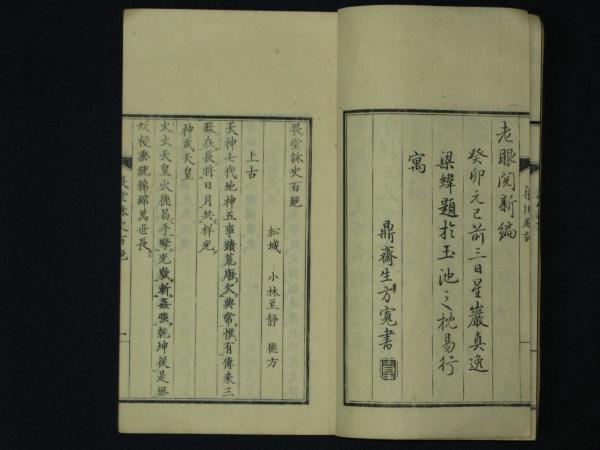 老眼閲新編
癸卯元巳前三日星巖真逸
梁緯題於玉池之枕易行
寓
鼎齋生方寬書
畏堂詠史百絶
松城 小林至静 極方
上古
天神七代地神五事蹟荒唐欠典常惟有傳來三
器在長將日月共祥光
神武天皇
火出天皇火德昌手攀光嶽斬姦強乾坤從是無
妖祲垂統綿綿萬世長